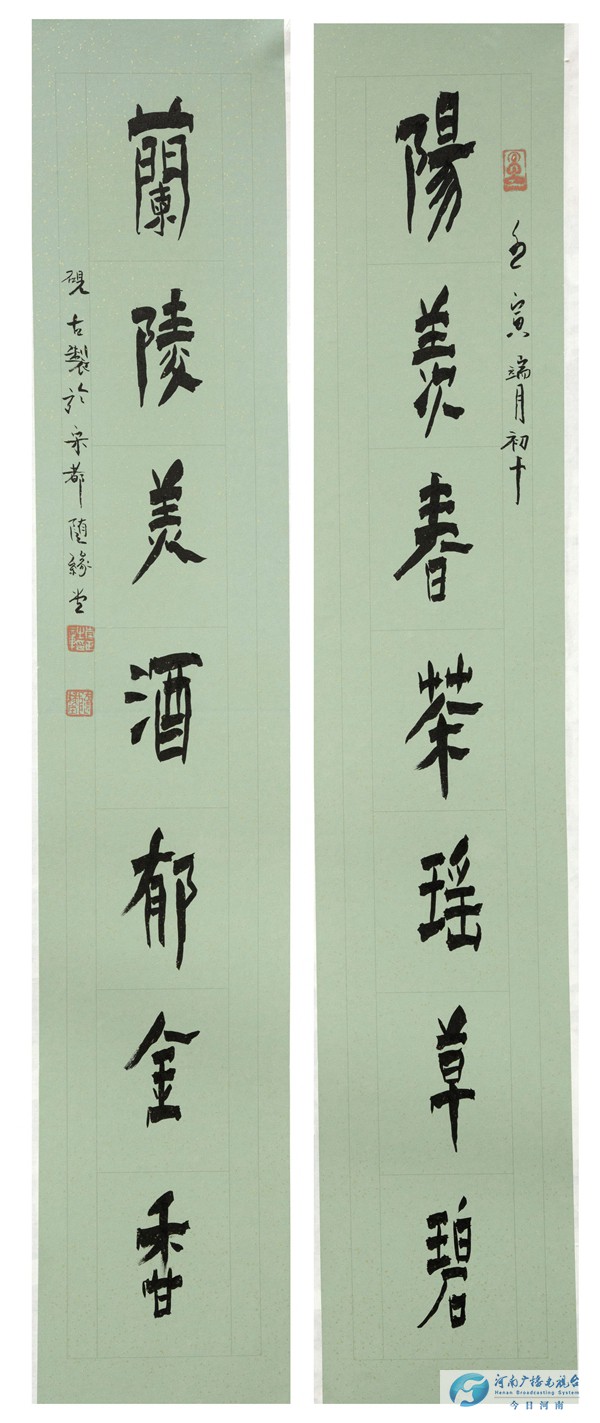 陽羨春茶瑤草碧
壬寅端月初十
蘭陵美酒郁金香
硯古製於宋都随緣堂
河南广播电视台
Henan Broadcasting System
今日河南